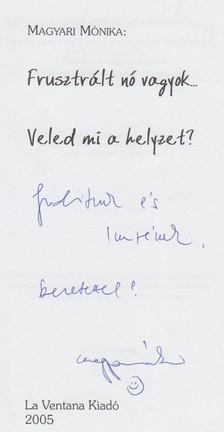 MAGYARI MÓNIKA:
Frusztrált nó vagyok...
Veled mi a helyzet?
Juditnak és
Imrének,
szeretettel!
La Ventana Kiadó
2005